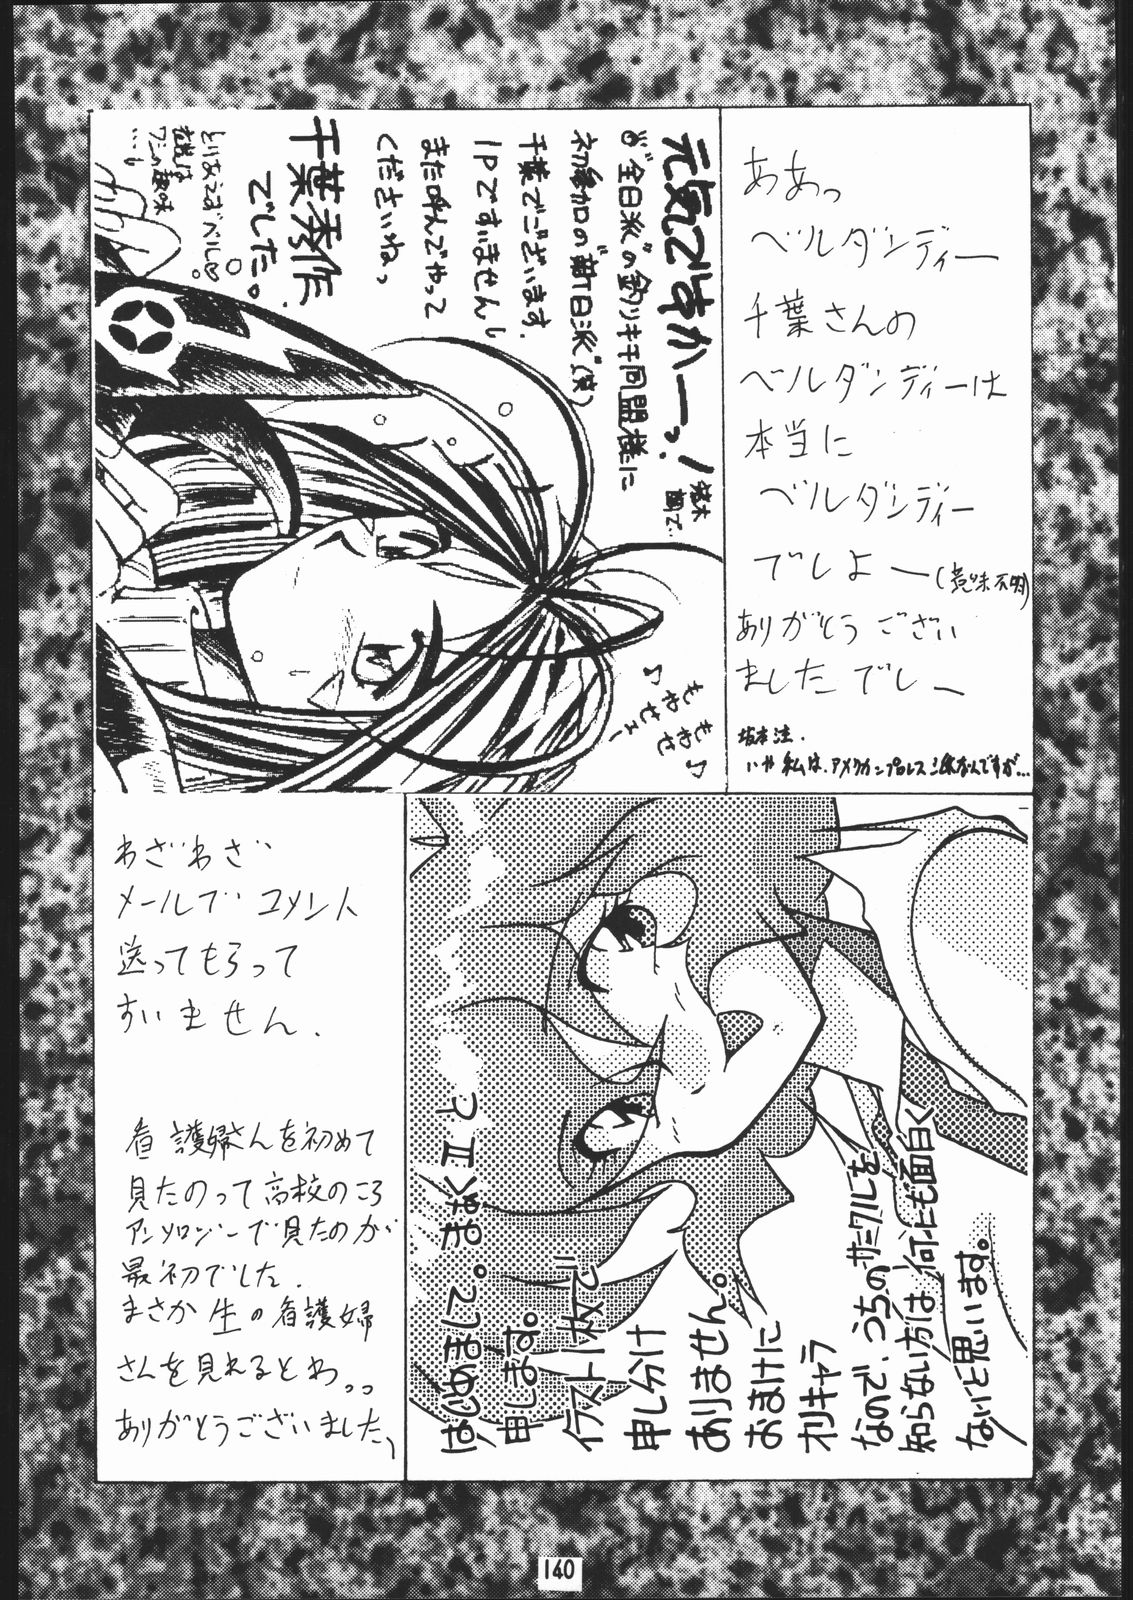 元気ですかーっ!
“全日派”の釣りキチ同盟様に
初参加の“新日派”(笑)
千葉でございます.
1Pですいませんし
また呼んでやって
くださいねっ
千葉秀作
でした。
とりあえずベル♡
…!
♪もやせェー
もやせ♪
ああっ
ベルダンディー
千葉さんの
ベルダンディーは
本当に
ベルダンディー
でしょー(意味不明)
ありがとうござい
ましたでしー
坂本注.
いや私は、アメリカンプロレス派なんですが…
わざわざ
メールで・コメント
送ってもらって
すいません.
看護婦さんを初めて
見たのって高校のころ
アンソロジーで見たのが
最初でした.
まさか生の看護婦
さんを見れるとわっっ
ありがとうございました、
はじめまして。まはぐ
申します。
イラスト一枚で
申し分け
ありません。
おまけに
オリキャラ
なので、うちのサークルを
知らない方は何にも面白く
ないと思います。
140